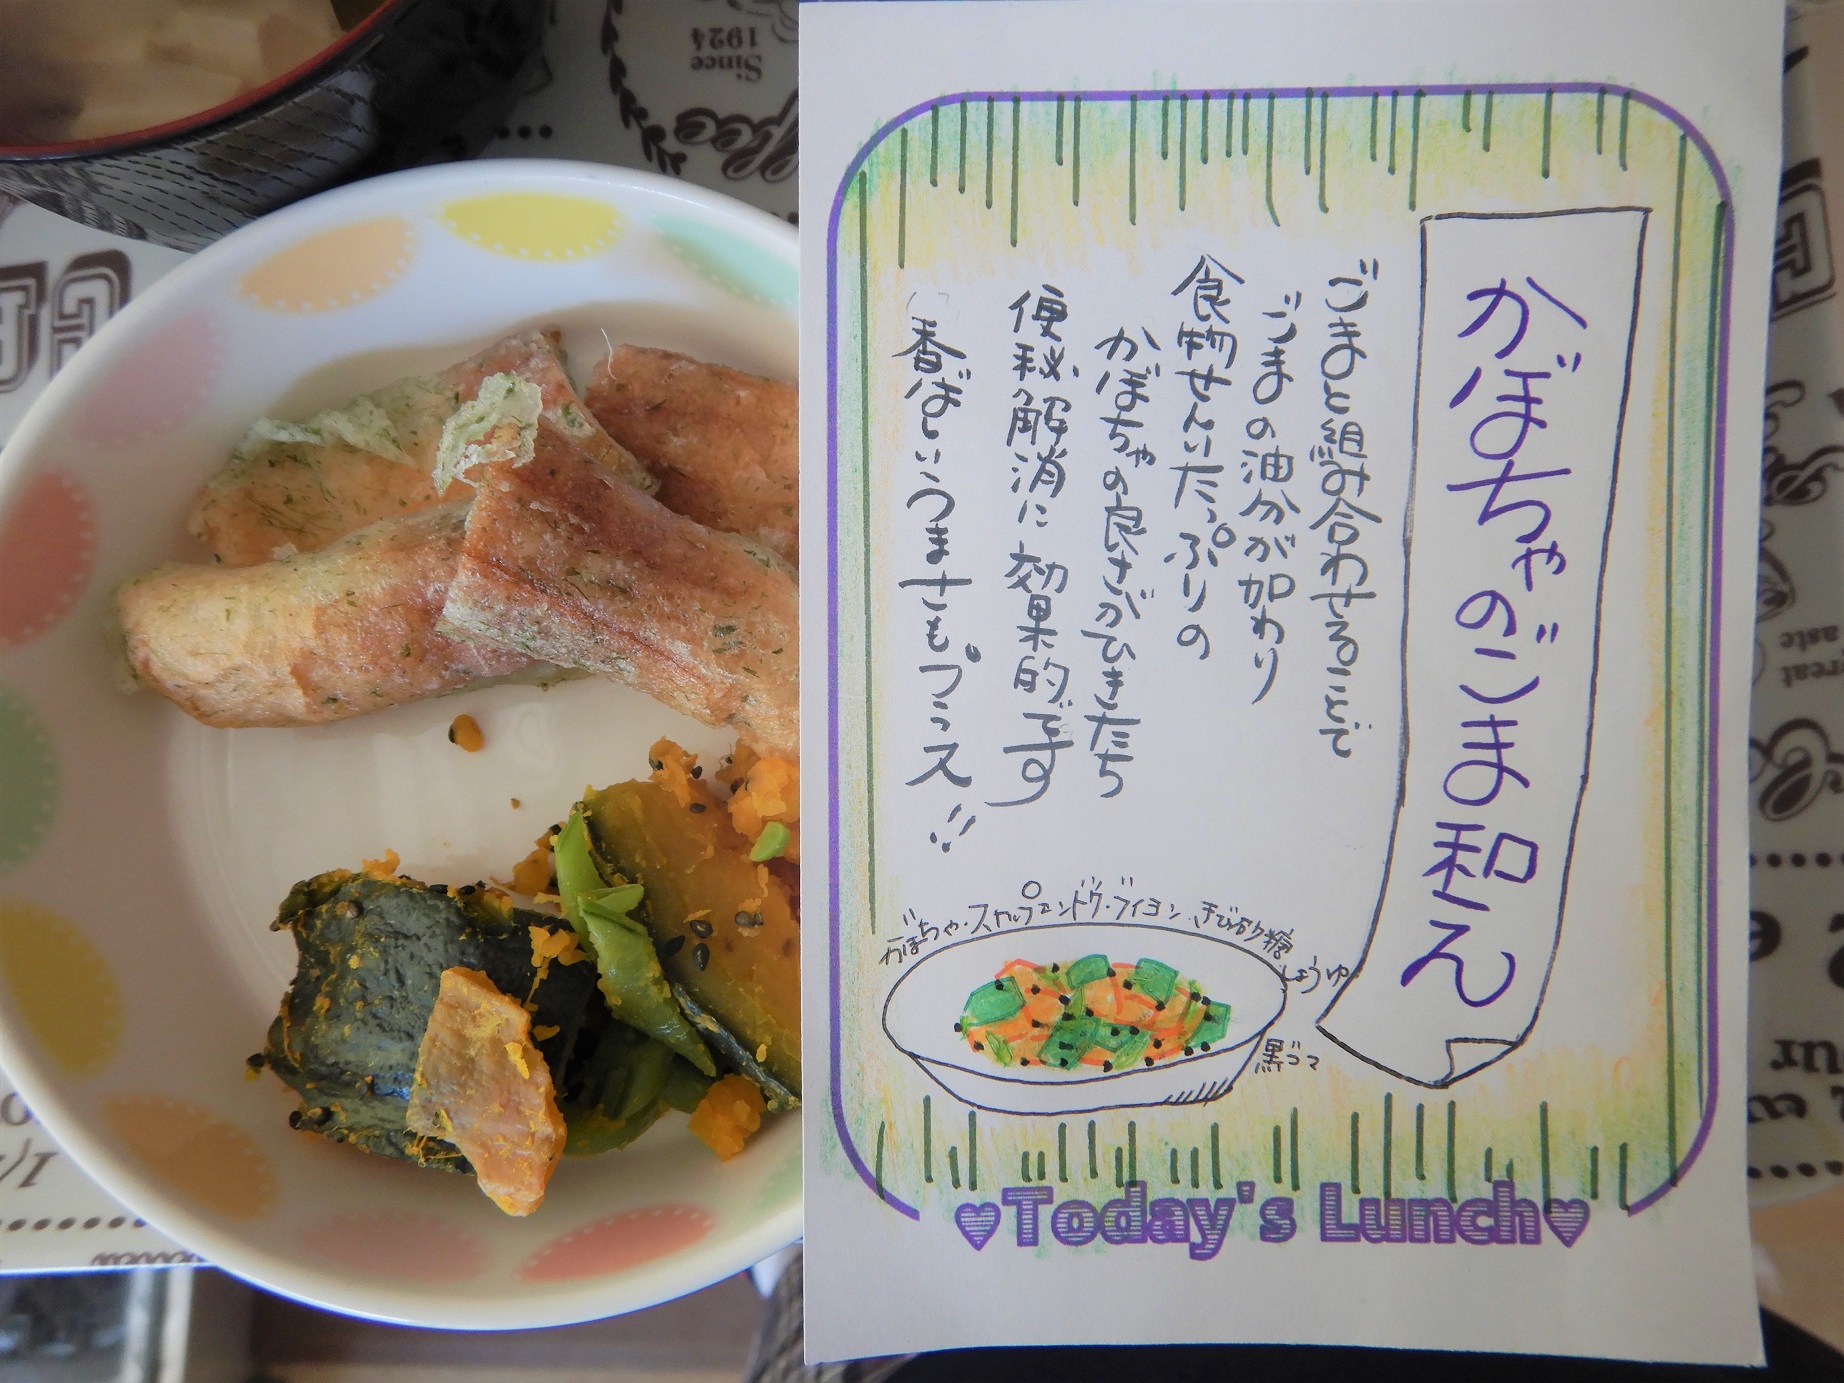 かぼちゃのごま和え
ごまと組み合わせることで
ごまの油分が加わり
食物せんいたっぷりの
かぼちゃの良さがひきたち
便秘解消に効果的です
香ばしいうまさもプラス!!
かぼちゃ・スナップエンドウ・ブイヨン・きび砂糖
しょうゆ
黒ゴマ
♥Today's Lunch♥
Since
1924